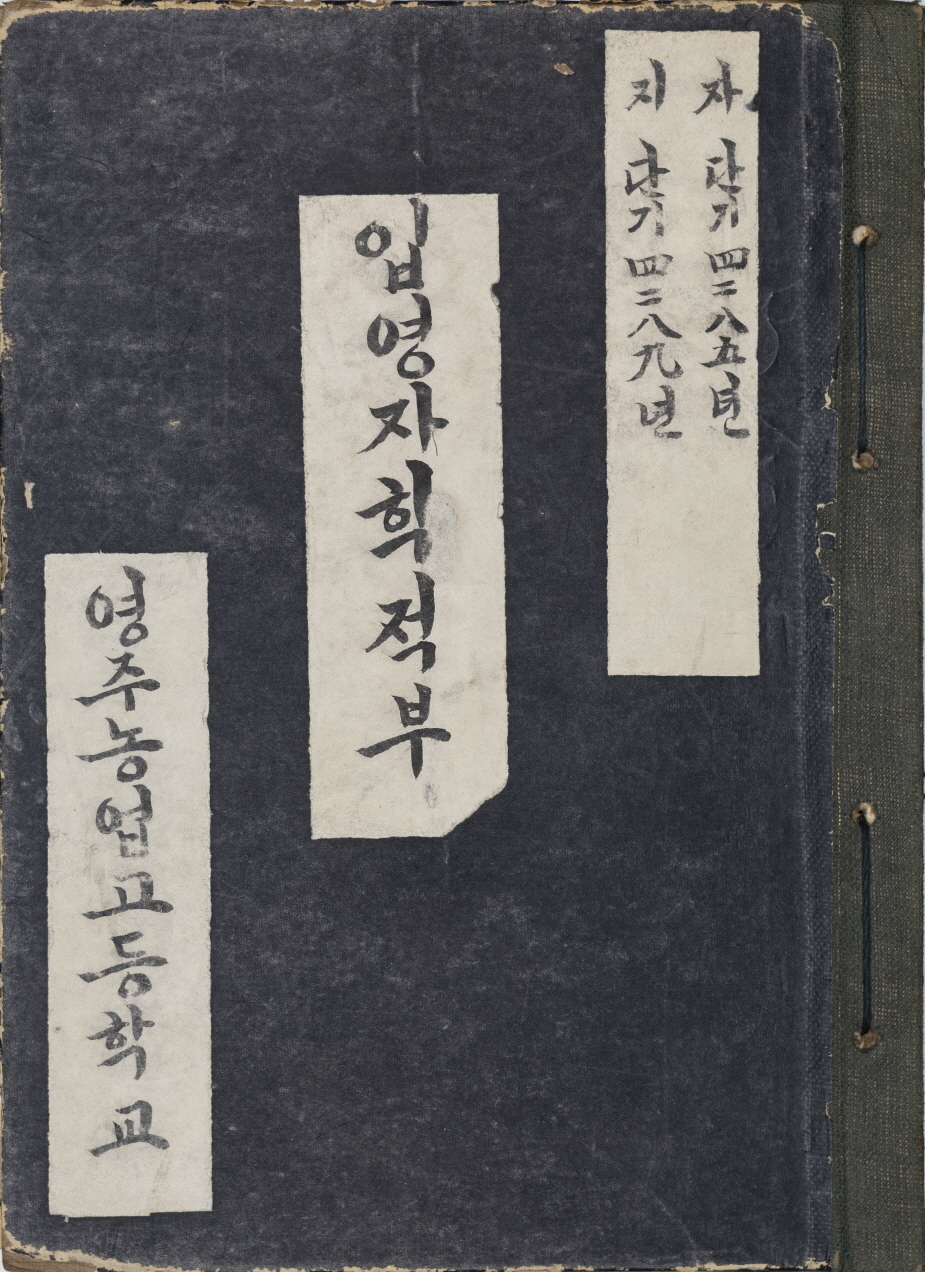 자 단기 四二八五년
지 단기 四二八九년
입영자학적부
영주농업고등학교